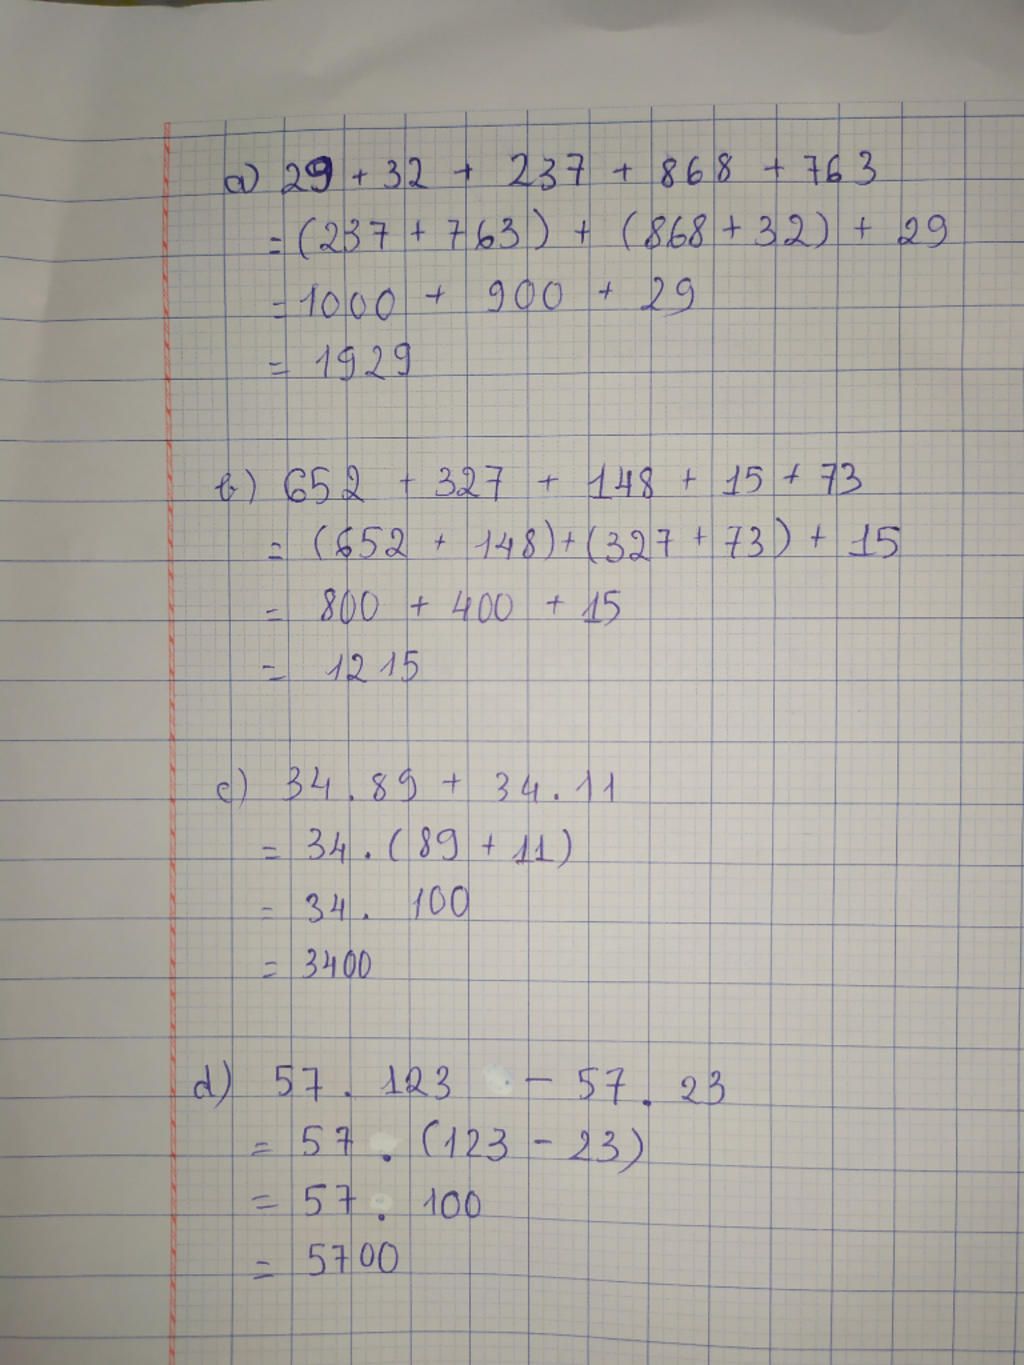 a) 29 + 32 + 237 + 868 + 763
= (237 + 763) + (868 + 32) + 29
= 1000 + 900 + 29
= 1929
b) 652 + 327 + 148 + 15 + 73
= (652 + 148) + (327 + 73) + 15
= 800 + 400 + 15
= 1215
c) 34 . 89 + 34 . 11
= 34 . (89 + 11)
= 34 . 100
= 3400
d) 57 . 123 - 57 . 23
= 57 . (123 - 23)
= 57 . 100
= 5700